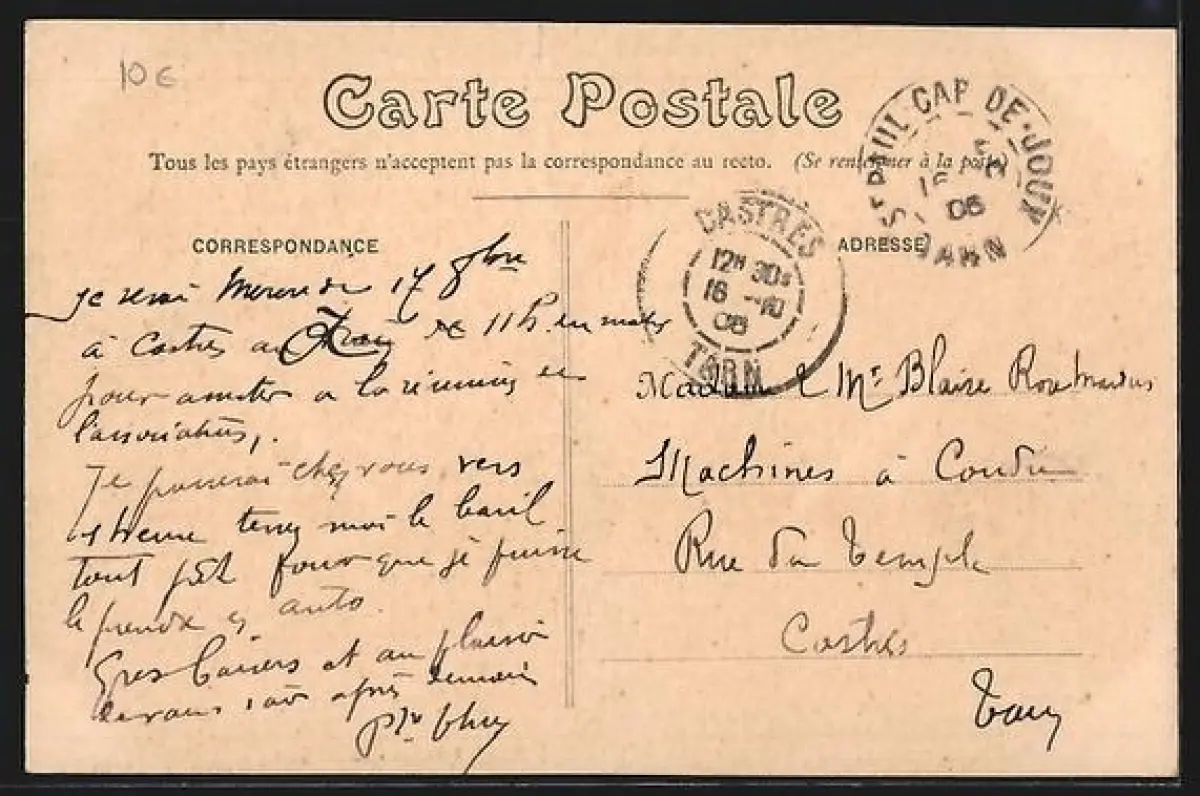 10 €
Carte Postale
Tous les pays étrangers n'acceptent pas la correspondance au recto. (Se renseigner à la poste)
ST PAUL-CAP-DE-JOUX
15
06
TARN
CASTRES
12H 30S
16 -10
06
TARN
CORRESPONDANCE
je serai Mercredi 17 8bre
à Castres au train de 11h du matin
pour assister a la réunion de
l'association.
Je passerai chez vous vers
1 heure tenez moi le baril
tout prêt pour que je puisse
le prendre en auto.
Gros baisers et au plaisir
de vous voir après demain
ADRESSE
Madame & Mr Blaise
Machines à Coudre
Rue du Temple
Castres
Tarn